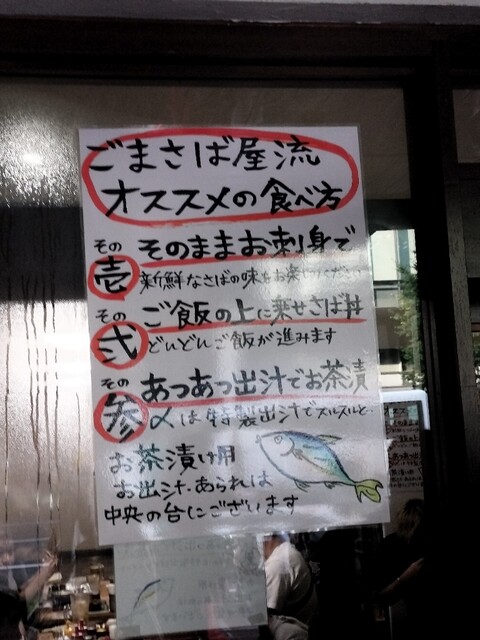 ごまさば屋流
オススメの食べ方
その壱 そのままお刺身で
新鮮なさばの味をお楽しみください
その弐 ご飯の上に乗せさば丼
どんどんご飯が進みます
その参 あつあつ出汁でお茶漬
〆は特製出汁でズルズルと
お茶漬け用
お出汁、あられは
中央の台にございます